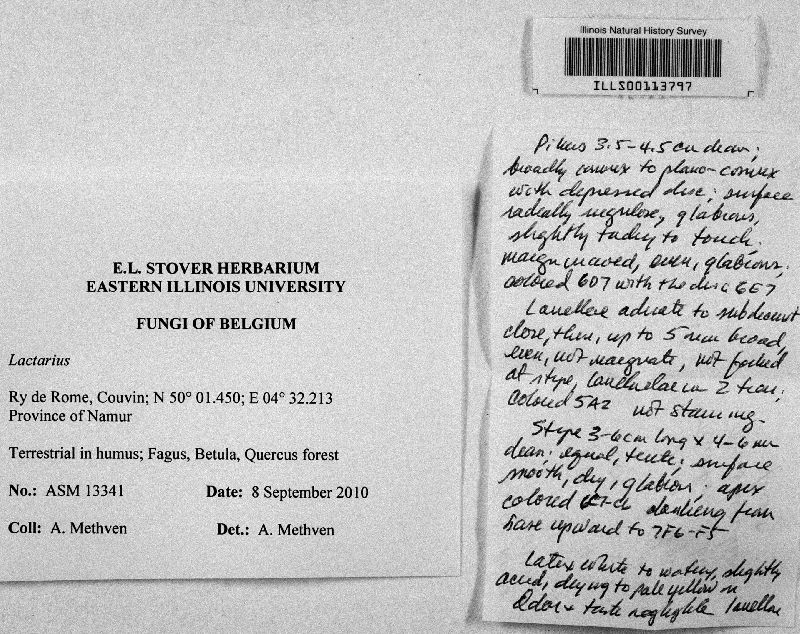 Illinois Natural History Survey
ILLS00113797
E.L. STOVER HERBARIUM
EASTERN ILLINOIS UNIVERSITY
FUNGI OF BELGIUM
Lactarius
Ry de Rome, Couvin; N 50° 01.450; E 04° 32.213
Province of Namur
Terrestrial in humus; Fagus, Betula, Quercus forest
No.: ASM 13341 Date: 8 September 2010
Coll: A. Methven Det.: A. Methven
Pileus 3.5-4.5 cm diam;
broadly convex to plano-convex
with depressed disc; surface
radially rugulose, glabrous,
slightly tacky to touch.
margin incurved, even, glabrous;
colored 6D7 with the disc 6E7
Lamellae adnate to subdecurrent
close, thin, up to 5 mm broad,
even, not marginate, not forked
at stipe, lamellulae in 2 tiers;
colored 5A2 not staining.
Stipe 3-6 cm long x 4-6 mm
diam; equal, terete; surface
smooth, dry, glabrous; apex
colored darkening from
base upward to 7F6-F5
Latex white to watery, slightly
acrid, drying to pale yellow on
Odor + taste negligible lamellae